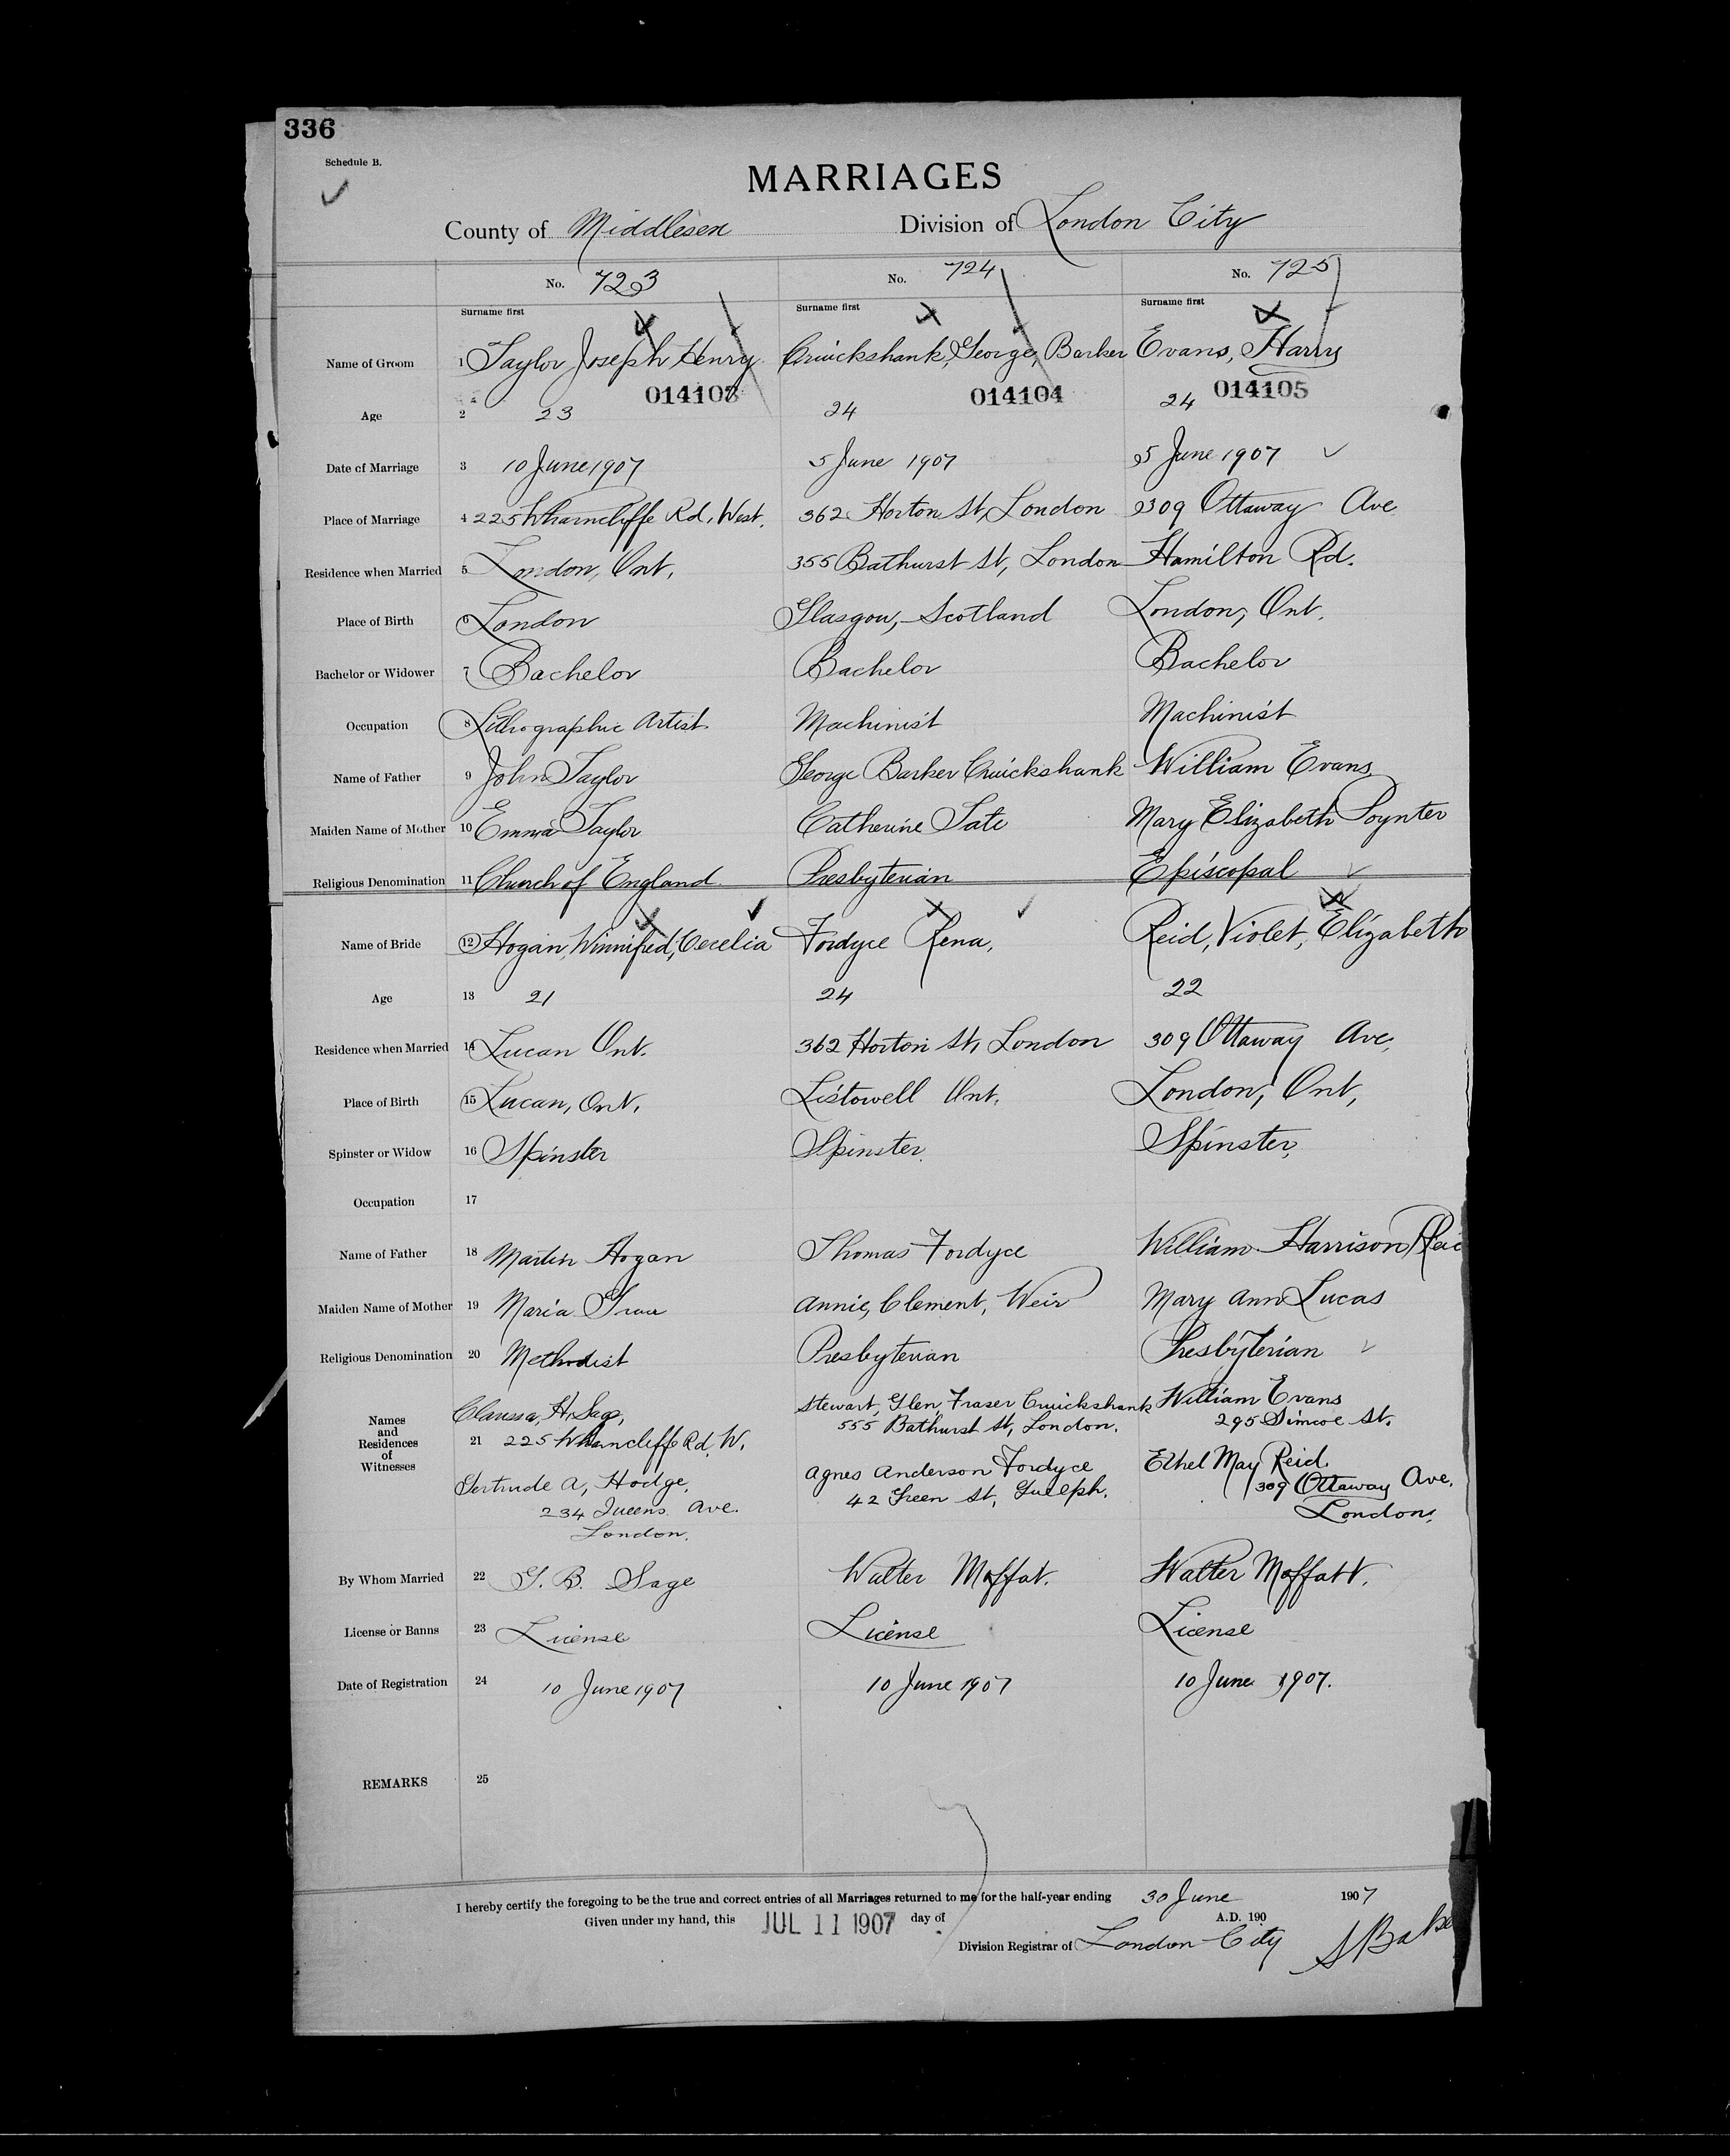 336
Schedule B.
MARRIAGES
County of Middlesex Division of London City
No. 723 No. 724 No. 725
Surname first Surname first Surname first
Name of Groom 1 Taylor Joseph Henry Cruickshank, George, Barker Evans, Harry
014103 014104 014105
Age 2 23 24 24
Date of Marriage 3 10 June 1907 5 June 1907 5 June 1907
Place of Marriage 4 225 Wharncliffe Rd, West. 362 Horton St, London 309 Ottaway Ave
Residence when Married 5 London, Ont, 355 Bathurst St, London Hamilton Rd.
Place of Birth 6 London Glasgow, Scotland London, Ont.
Bachelor or Widower 7 Bachelor Bachelor Bachelor
Occupation 8 Lithographic Artist Machinist Machinist
Name of Father 9 John Taylor George Barker Cruickshank William Evans
Maiden Name of Mother 10 Emma Taylor Catherine Tate Mary Elizabeth Poynter
Religious Denomination 11 Church of England Presbyterian Episcopal
Name of Bride 12 Hogan, Winnifred, Cecelia Fordyce Rena, Reid, Violet, Elizabeth
Age 13 21 24 22
Residence when Married 14 Lucan Ont. 362 Horton St, London 309 Ottaway Ave,
Place of Birth 15 Lucan, Ont, Listowell Ont. London, Ont,
Spinster or Widow 16 Spinster Spinster Spinster,
Occupation 17
Name of Father 18 Martin Hogan Thomas Fordyce William Harrison
Maiden Name of Mother 19 Maria Annie, Clement, Weir Mary Ann Lucas
Religious Denomination 20 Methodist Presbyterian Presbyterian
Names and Residences of Witnesses 21
Clarissa, H. Sage,
225 Wharncliffe Rd, W.
Gertrude A, Hodge,
234 Queens Ave.
London.
Stewart, Glen, Fraser Cruickshank
555 Bathurst St, London.
Agnes Anderson Fordyce
42 Green St, Guelph.
William Evans
295 Simcoe St.
Ethel May Reid.
309 Ottaway Ave,
London.
By Whom Married 22 G. B. Sage Walter Moffat. Walter Moffatt.
License or Banns 23 License License License
Date of Registration 24 10 June 1907 10 June 1907 10 June 1907.
REMARKS 25
I hereby certify the foregoing to be the true and correct entries of all Marriages returned to me for the half-year ending 30 June 1907
Given under my hand, this JUL 11 1907 day of A.D. 190
Division Registrar of London City